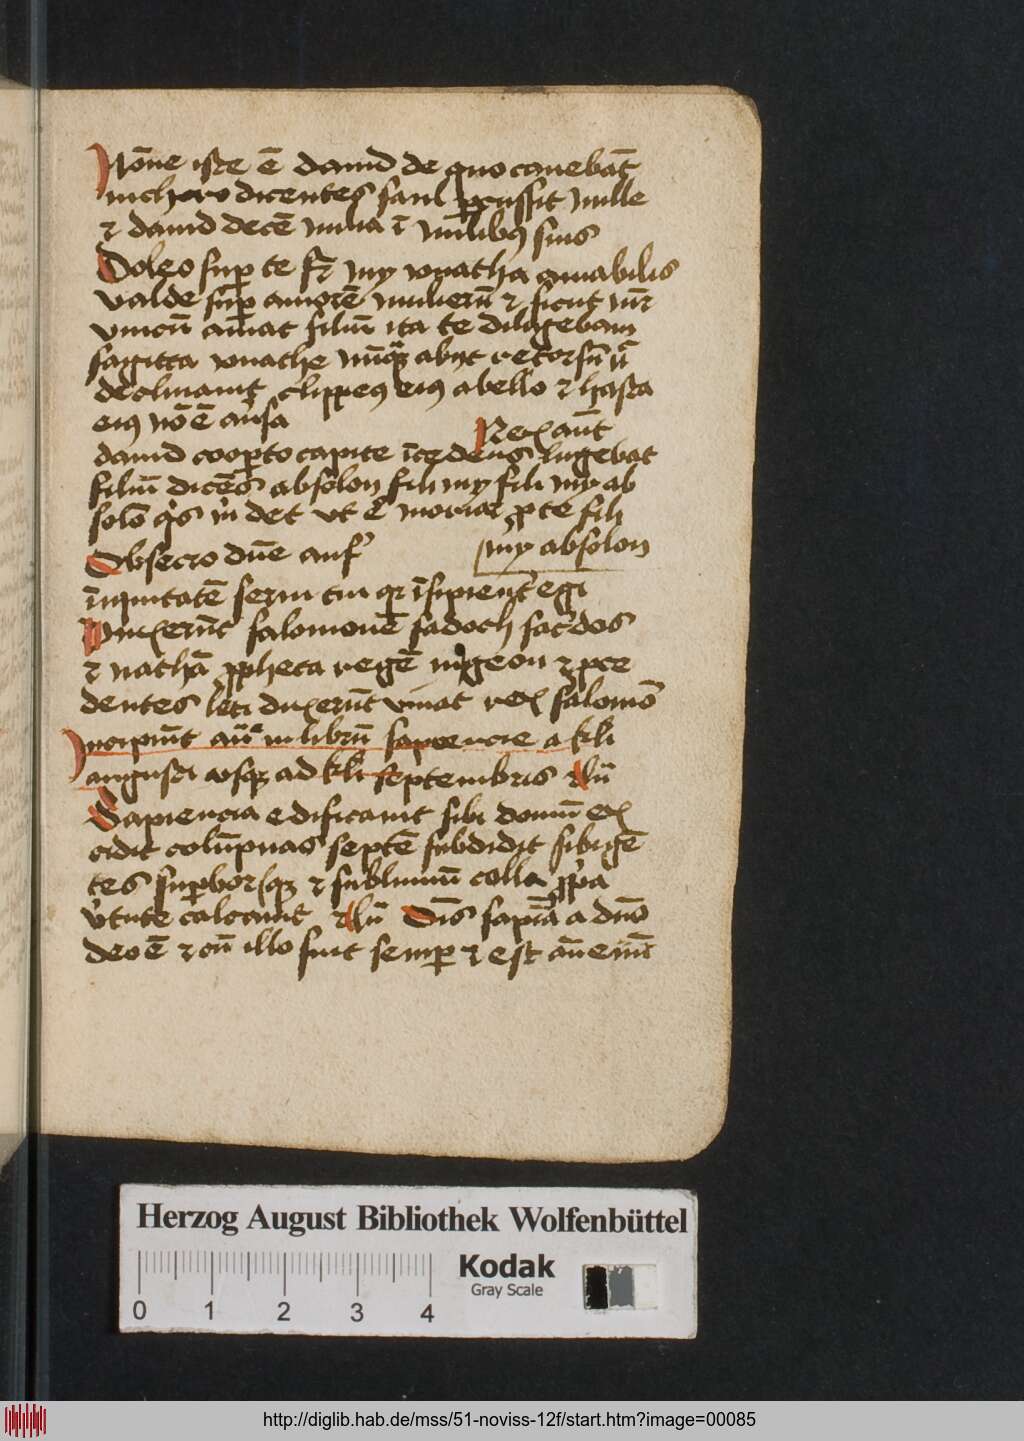 Nōne iste ē dauid de quo canebāt
in choro dicentes saul ꝑcussit mille
⁊ dauid decē milia ī milibꝫ suis
Doleo suꝑ te fr̄ my yonatha amabilis
valde suꝑ amorē mulierū ⁊ sicut mr̄
vnicū amat filiū ita te diligebam
sagitta yonathe nūqᷓ abyt retorsū ū
declinauit clippeꝰ eiꝰ a bello ⁊ hasta
eiꝰ nō ē au̓sa
Rex aūt
dauid cooꝑto capite īcedens lugebat
filiū dicēs absolon fili my fili my ab
solō qͥs m̥ det vt eͦ moriar ꝓ te fili
my absolon
Obsecro dn̄e auf̓
īiquitatē serui tui qr īsipient̓ egi
Vnxerūt salomonē sadoch sac̓dos
⁊ nathā ꝓpheta regē in geon ⁊ ꝓce
dentes leti dixerūt viuat rex salomō
Incipiūt aū̄ in librū sapiencie a kl̄i
augusti vsqꝫ ad kl̄i septembris Al̄ū
Sapiencia edificauit sibi domū ex
cidit colūpnas septē subdidit sibi gē
tes suꝑborūqꝫ ⁊ sublimiū colla ꝓpͥa
v̓tute calcauit Al̄ū Oīs sapīa a dn̄o
deo ē ⁊ cū illo fuit semꝑ ⁊ est an̄ euū
Herzog August Bibliothek Wolfenbüttel
Kodak
Gray Scale
0 1 2 3 4
http://diglib.hab.de/mss/51-noviss-12f/start.htm?image=00085